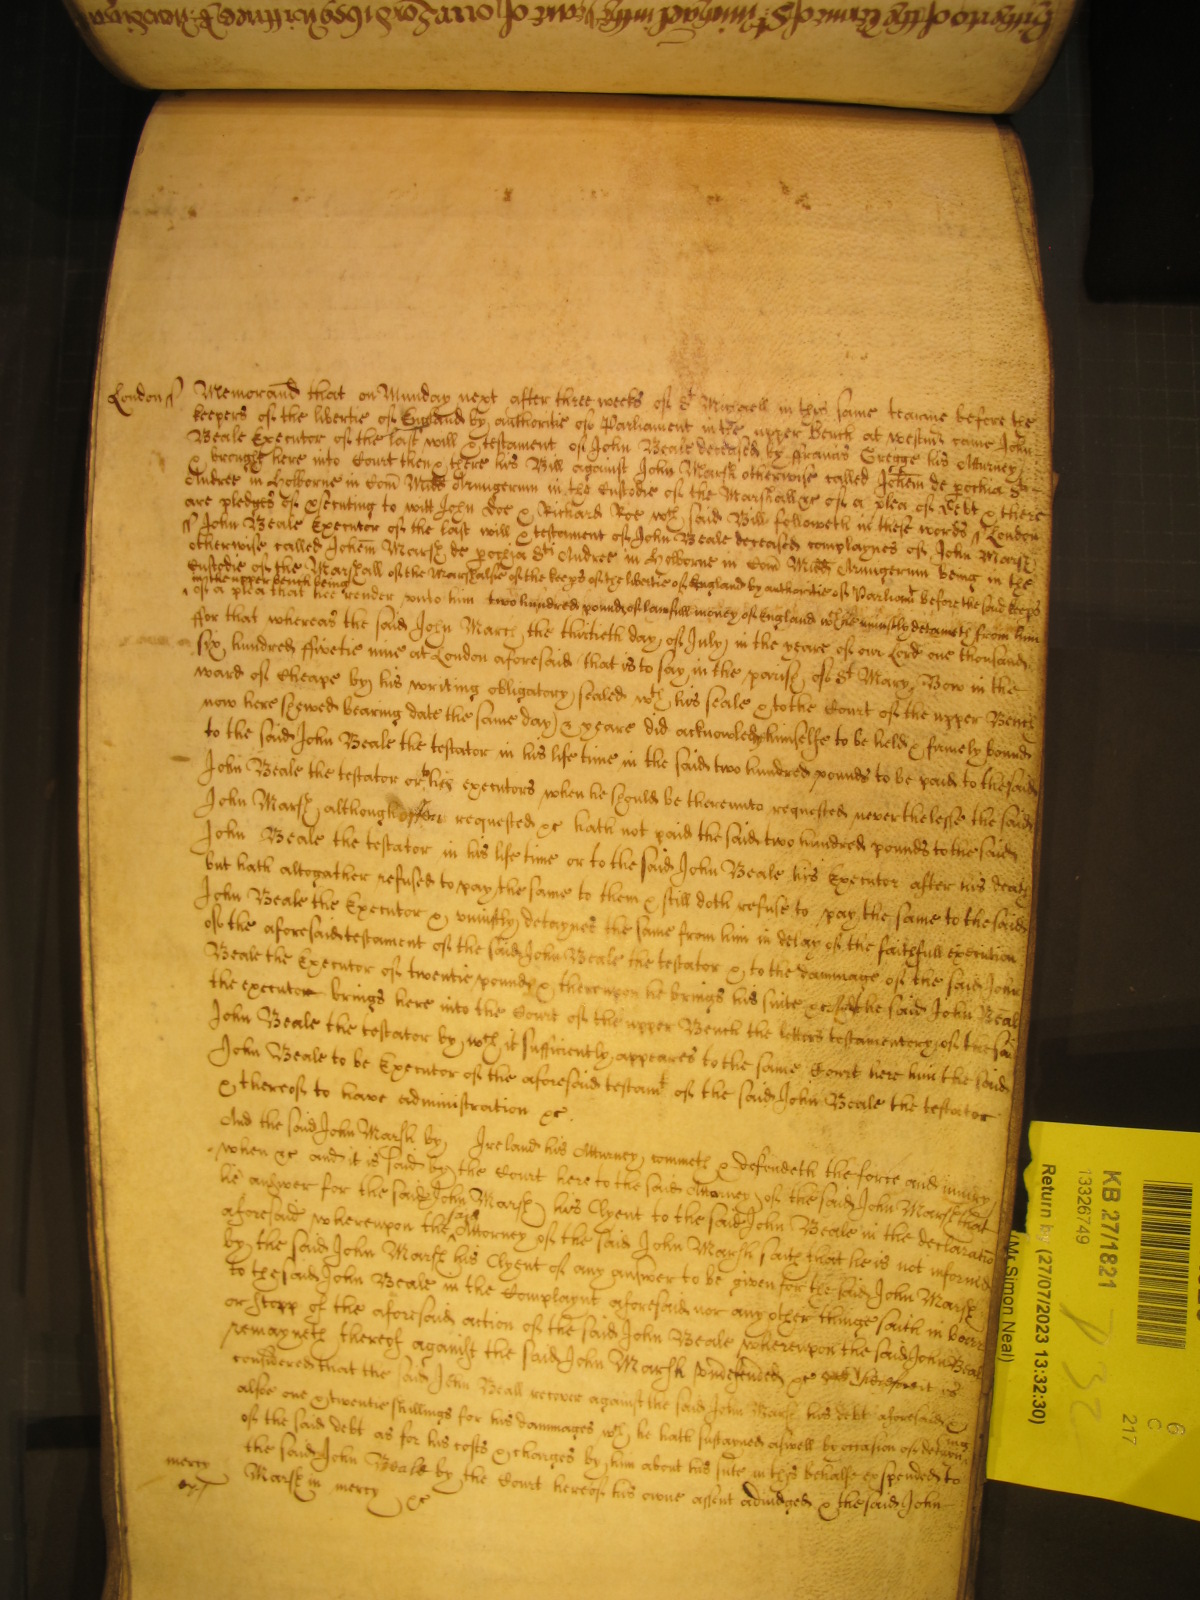 London ss Memorand that on Munday next after three weeks of St Michaell in this same tearme before the
keepers of the libertie of England by authoritie of Parliament in the upper bench at westmr came John
Beale Executor of the last will & testament of John Beale deceased by ffrancis Gregge his Atturney
& brought here into Court then & there his Bill against John Marsh otherwise called Johem de pochia Sti
Andree in Holborne in Com Midd Armigerum in the Custodie of the Marshall &c of a plea of debt & there
are pledges of prosecuting to witt John Doe & Richard Roe wch said Bill followeth in these words ss London
ss John Beale Executor of the last will & testament of John Beale deceased complaynes of John Marsh
otherwise called Johem Marsh de pochia Sti Andree in Holborne in Com Midd Armigerum being in the
Custodie of the Marshall of the Marshalsie of the keeps of the libertie of England by authoritie of Parliamt before the said keeps
in the upper bench being
of a plea that hee render unto him two hundred pounds of lawfull money of England wch he uniustly detaineth from him
ffor that whereas the said John March the thirtieth day of July in the yeare of our Lord one thousand
six hundred ffivetie nine at London aforesaid that is to say in the parish of St Mary Bow in the
ward of Cheape by his writing obligatory sealed wth his seale & to the Court of the upper Bench
now here shewed bearing date the same day & yeare did acknowledg himselfe to be held & firmely bound
to the said John Beale the testator in his life time in the said two hundred pounds to be paid to the said
John Beale the testator or to his executors when he should be thereunto requested neverthelesse the said
John Marsh although often requested &c hath not paid the said two hundred pounds to the said
John Beale the testator in his life time or to the said John Beale his Executor after his death
but hath altogather refused to pay the same to them & still doth refuse to pay the same to the said
John Beale the Executor & uniustly detaynes the same from him in delay of the faithfull execution
of the aforesaid testament of the said John Beale the testator & to the dammage of the said John
Beale the Executor of twentie pounds & thereupon he brings his suite &c And the said John Beale
the executor brings here into the Court of the upper Bench the letters testamentory of the said
John Beale the testator by wch it sufficiently appeares to the same Court here him the said
John Beale to be Executor of the aforesaid testamt of the said John Beale the testator
& thereof to have administration &c
And the said John Marsh by Ireland his Atturney commeth & defendeth the force and iniury
when &c and it is said by the Court here to the said Attorney of the said John Marsh that
he answer for the said John Marsh his Clyent to the said John Beale in the declaratio
aforesaid whereupon the said Attorney of the said John Marsh saith that he is not informed
by the said John Marsh his Clyent of any answer to be given for the said John Marsh
to the said John Beale in the Complaynt aforesaid nor any other thinge saith in barr
or stopp of the aforesaid action of the said John Beale whereupon the said John Beale
remayneth thereof against the said John Marsh undefended &c Therefore it is
considered that the said John Beall recover against the said John Marsh his debt aforesaid &
alsoe one & twentie shillings for his dammages wch he hath sustayned aswell by occasion of detayning
of the said debt as for his costs & charges by him about his suite in this behalfe expended to
the said John Beale by the Court hereof his owne assent adiudged & the said John
mercy Marsh in mercy &c
KB 27/1821
13326749
Return by (27/07/2023 13:32:30)
(Mr Simon Neal)
6
C
217